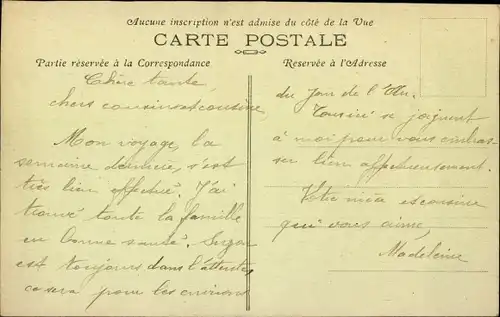 Aucune inscription n'est admise du côté de la Vue
CARTE POSTALE
Partie réservée à la Correspondance
Reservée à l'Adresse
Chère tante,
chers cousins et cousine
Mon voyage, la
semaine dernière, s'est
très bien effectué. J'ai
trouvé toute la famille
en bonne santé.
est toujours dans l'attente,
ce sera pour les environs
du Jour de l'An.
se joignent
à moi pour vous embras-
ser bien affectueusement.
Votre nièce et cousine
qui vous aime,
Madeleine